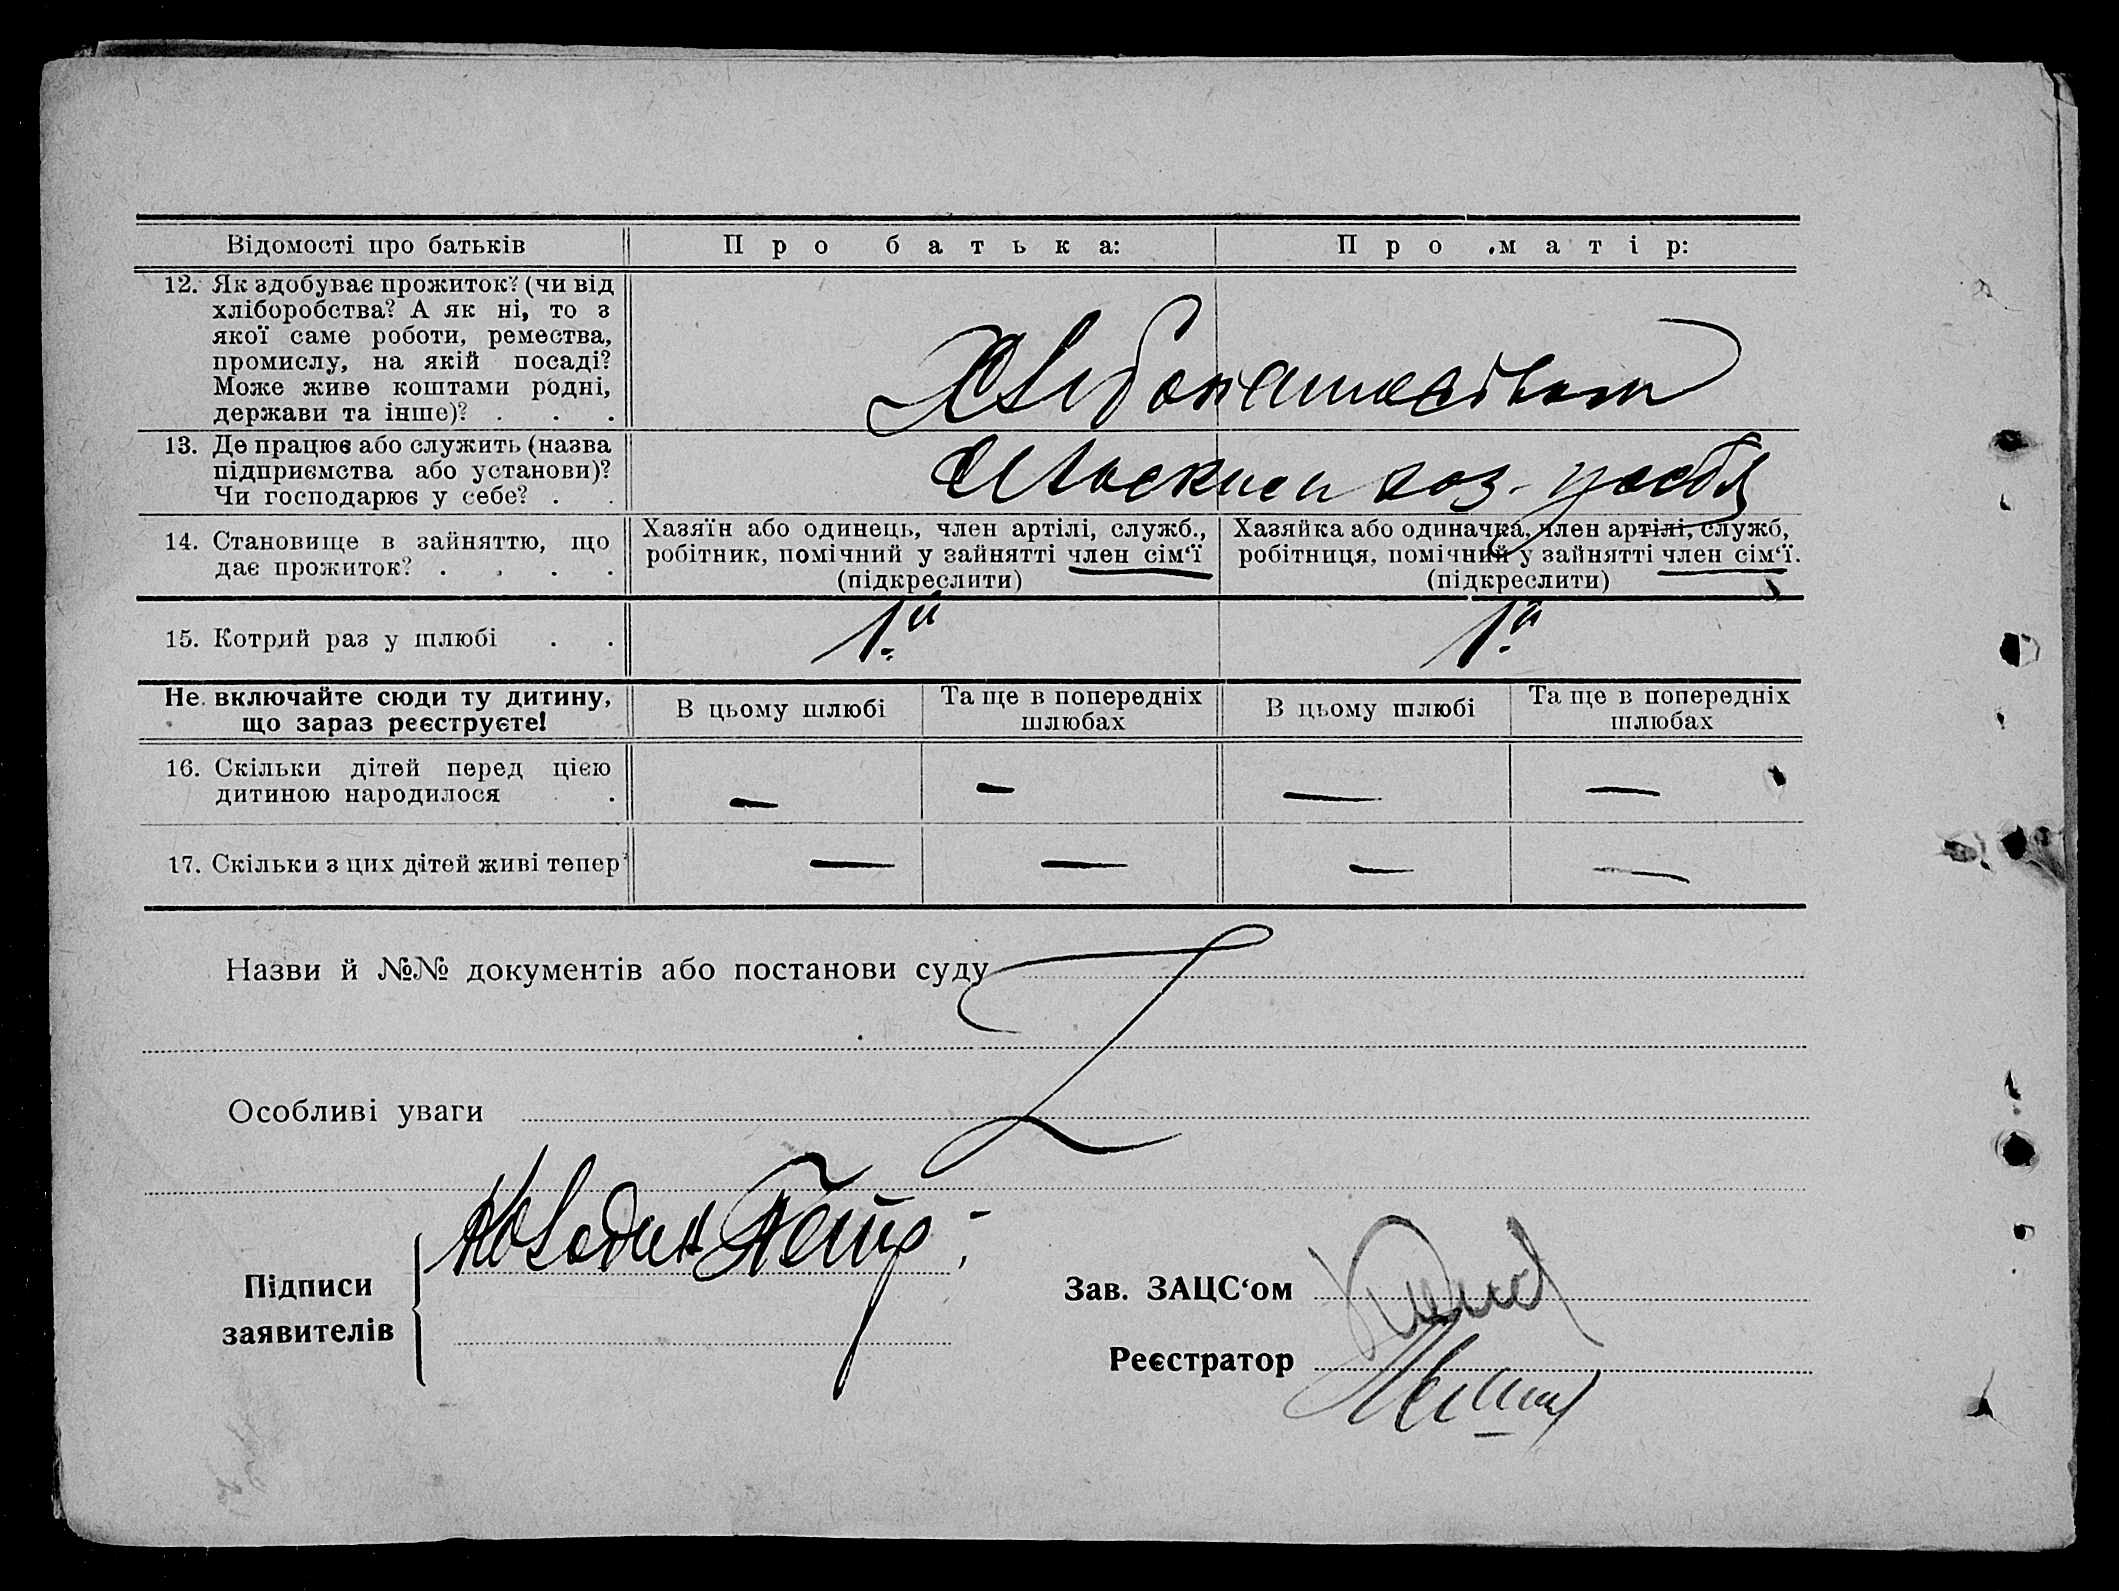 Відомості про батьків
Про батька:
Про матір:
12. Як здобуває прожиток? (чи від
хліборобства? А як ні, то з
якої саме роботи, ремества,
промислу, на якій посаді?
Може живе коштами родні,
держави та інше)? . . .
13. Де працює або служить (назва
підприємства або установи)?
Чи господарює у себе? . .
у себе
14. Становище в зайняттю, що
дає прожиток? . . . .
Хазяїн або одинець, член артілі, служб.,
робітник, помічний у зайнятті член сім‘ї
(підкреслити)
Хазяйка або одиначка, член артілі, служб,
робітниця, помічний у зайнятті член сім‘ї.
(підкреслити)
15. Котрий раз у шлюбі . .
1й
1й
Не включайте сюди ту дитину,
що зараз реєструєте!
В цьому шлюбі
Та ще в попередніх
шлюбах
В цьому шлюбі
Та ще в попередніх
шлюбах
16. Скільки дітей перед цією
дитиною народилося .
— — — —
17. Скільки з цих дітей живі тепер
— — — —
Назви й №№ документів або постанови суду
Особливі уваги
Підписи
заявителів
Петр
Зав. ЗАЦС‘ом
Реєстратор